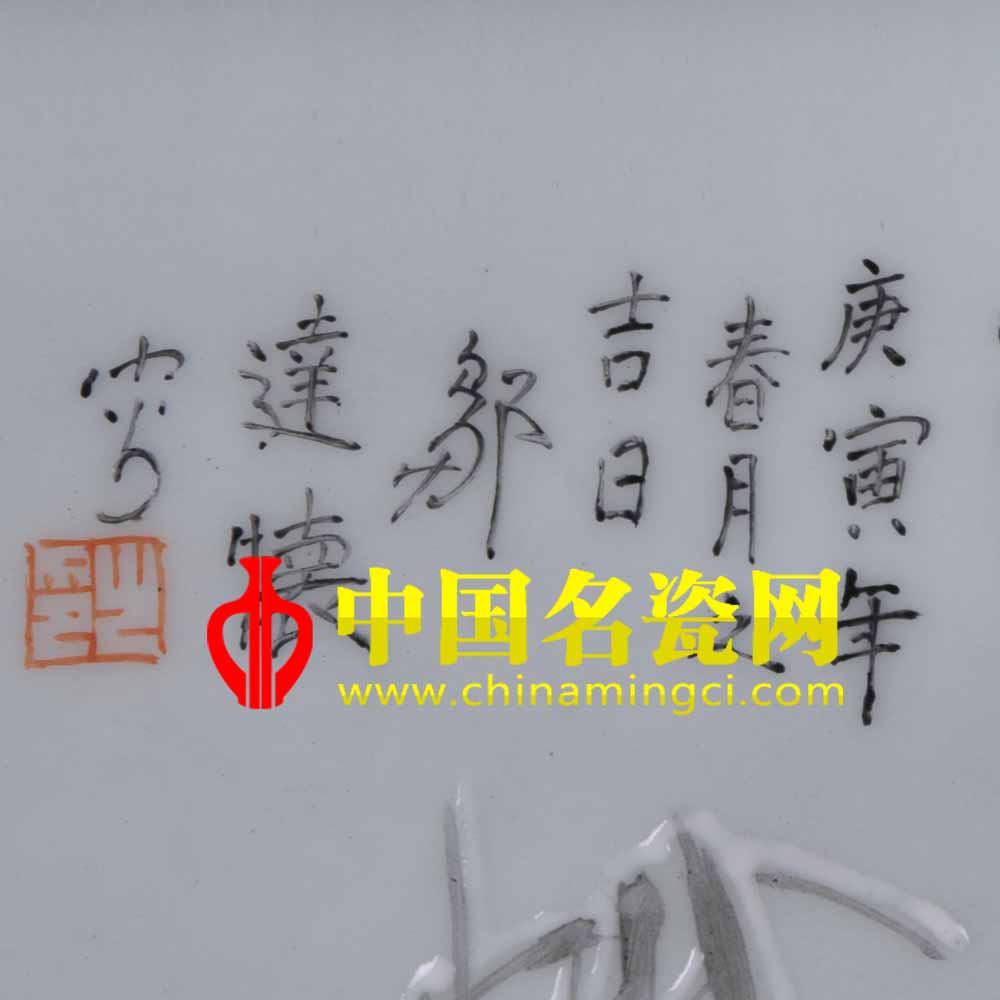 庚寅年
春月之
吉日
鄒
達懷
寫
中国名瓷网
www.chinamingci.com